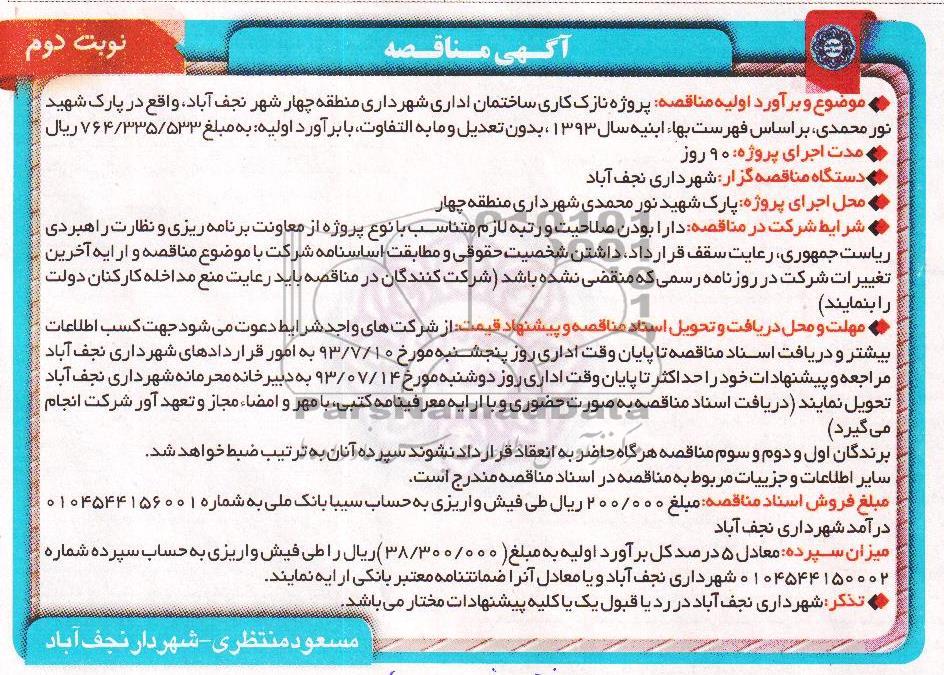 نوبت دوم
آگهی مناقصه
موضوع و برآورد اولیه مناقصه: پروژه نازک کاری ساختمان اداری شهرداری منطقه چهار شهر نجف آباد، واقع در پارک شهید
نور محمدی، بر اساس فهرست بهاء ابنیه سال ۱۳۹۳، بدون تعدیل و مابه التفاوت، با برآورد اولیه: به مبلغ ۷۶۴/۳۳۵/۵۳۳ ریال
مدت اجرای پروژه: ۹۰ روز
دستگاه مناقصه گزار: شهرداری نجف آباد
محل اجرای پروژه: پارک شهید نور محمدی شهرداری منطقه چهار
شرایط شرکت در مناقصه: دارا بودن صلاحیت و رتبه لازم متناسب با نوع پروژه از معاونت برنامه ریزی و نظارت راهبردی
ریاست جمهوری، رعایت سقف قرارداد، داشتن شخصیت حقوقی و مطابقت اساسنامه شرکت با موضوع مناقصه و ارایه آخرین
تغییرات شرکت در روزنامه رسمی که منقضی نشده باشد (شرکت کنندگان در مناقصه باید رعایت منع مداخله کارکنان دولت
را بنمایند)
مهلت و محل دریافت و تحویل اسناد مناقصه و پیشنهاد قیمت: از شرکت های واجد شرایط دعوت می شود جهت کسب اطلاعات
بیشتر و دریافت اسناد مناقصه تا پایان وقت اداری روز پنجشنبه مورخ ۹۳/۷/۱۰ به امور قراردادهای شهرداری نجف آباد
مراجعه و پیشنهادات خود را حداکثر تا پایان وقت اداری روز دوشنبه مورخ ۹۳/۰۷/۱۴ به دبیرخانه محرمانه شهرداری نجف آباد
تحویل نمایند (دریافت اسناد مناقصه به صورت حضوری و با ارایه معرفینامه کتبی، با مهر و امضاء مجاز و تعهد آور شرکت انجام
می گیرد)
برندگان اول و دوم و سوم مناقصه هرگاه حاضر به انعقاد قرارداد نشوند سپرده آنان به ترتیب ضبط خواهد شد.
سایر اطلاعات و جزییات مربوط به مناقصه در اسناد مناقصه مندرج است.
مبلغ فروش اسناد مناقصه: مبلغ ۲۰۰/۰۰۰ ریال طی فیش واریزی به حساب سیبا بانک ملی به شماره ۰۱۰۴۵۴۴۱۵۶۰۰۱
درآمد شهرداری نجف آباد
میزان سپرده: معادل ۵ درصد کل برآورد اولیه به مبلغ (۳۸/۳۰۰/۰۰۰) ریال را طی فیش واریزی به حساب سپرده شماره
۰۱۰۴۵۴۴۱۵۰۰۰۲ شهرداری نجف آباد و یا معادل آنرا ضمانتنامه معتبر بانکی ارایه نمایند.
تذکر: شهرداری نجف آباد در رد یا قبول یک یا کلیه پیشنهادات مختار می باشد.
مسعود منتظری-شهردار نجف آباد
ParsNamadData